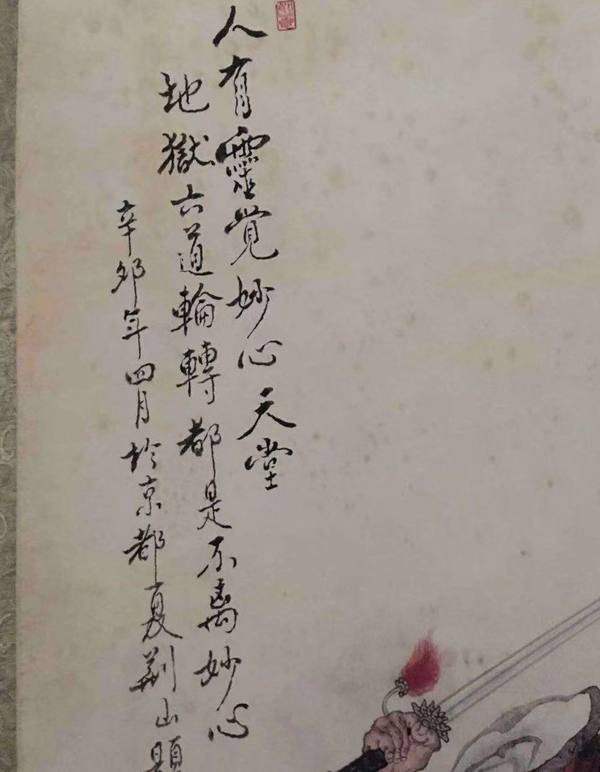 人有靈覚妙心天堂
地獄六道輪轉都是不离妙心
辛卯年四月於京都夏荆山題